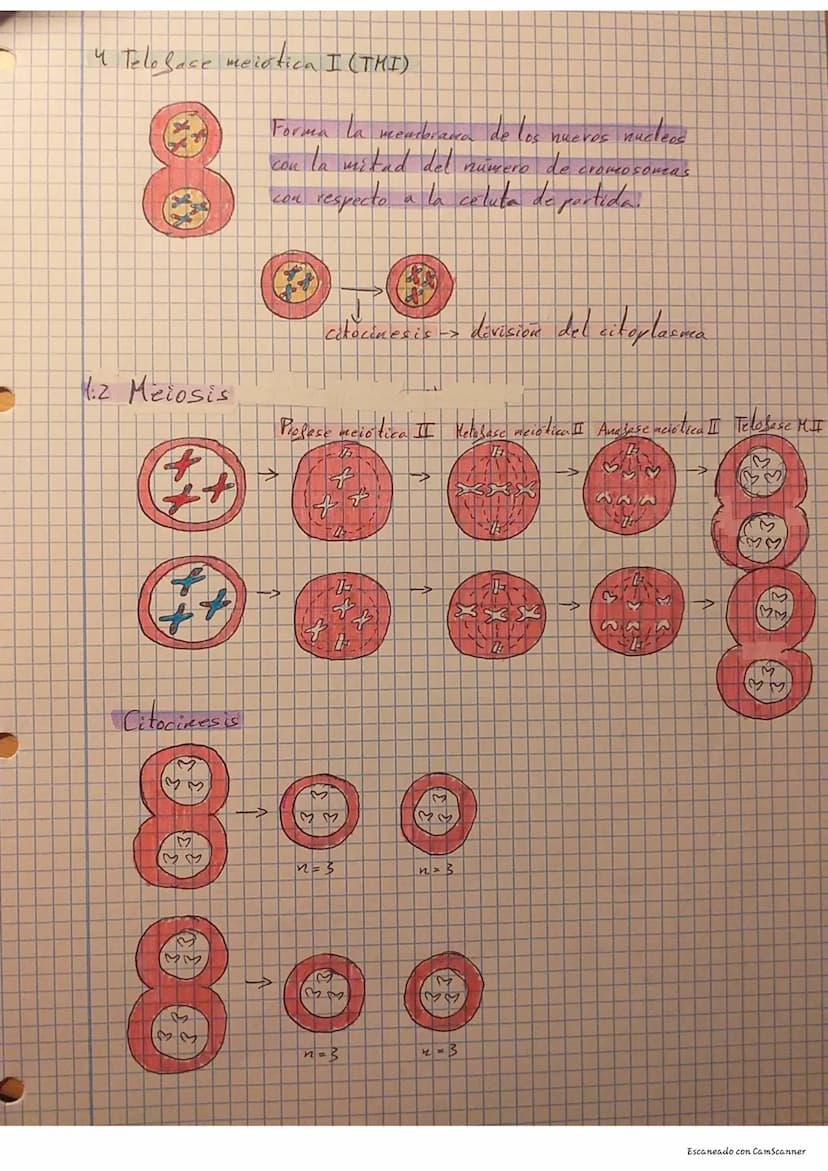 4 Telofase meiótica I (TMI)
Forma la membrana de los nuevos nucleos
con la mitad del número de cromosomas
con respecto a la célula de partida.
citocinesis -> división del citoplasma
1.2 Meiosis
Profase meiótica II Metafase meiótica II Anafase meiótica II Telofase M.II
Citocinesis
n=3 n=3
n=3 n=3
Escaneado con CamScanner